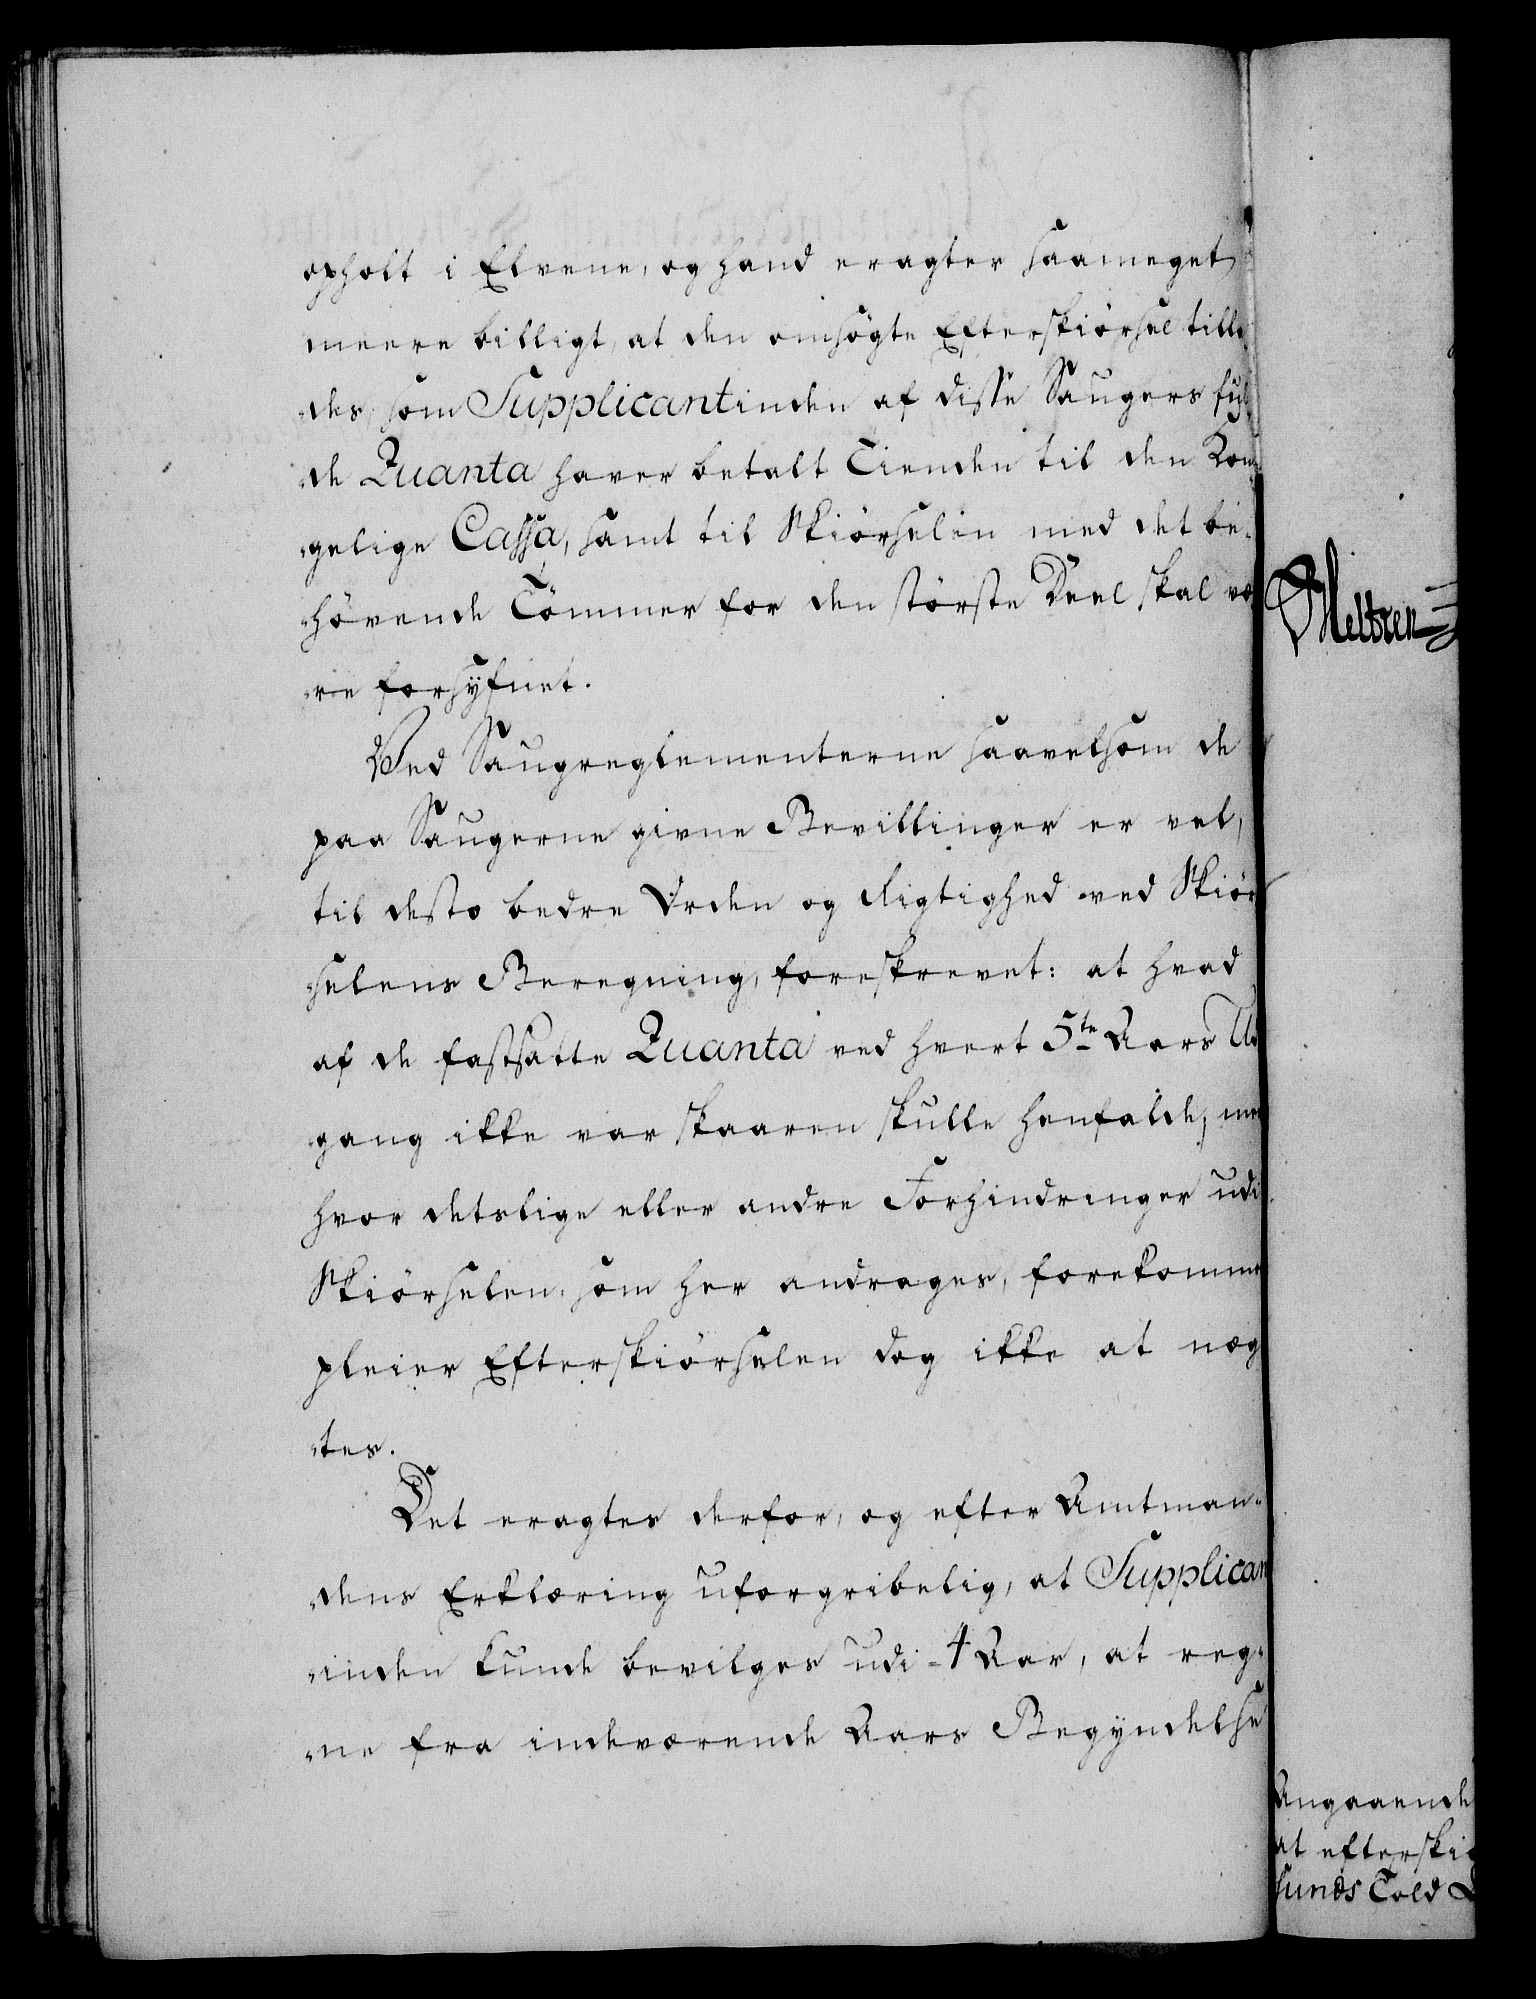 opholt i Elvene, og hand eragter saameget
meere billigt, at den omsögte Efterskiörsel tilla
des, som Supplicantinden af disse Saugers ful
de Quanta haver betalt Tienden til den Kon
gelige Cassa, samt til Skiörselen med det be-
hövende Tömmer for den störste Deel skal væ
re forsÿfnet.
Ved Saugreglementerne saavelsom de
paa Saugerne givne Bevillinger er vel,
til desto bedre Orden og Rigtighed ved Skiör
selens Beregning, foreskrevet: at hvad
af de fastsatte Quanta ved hvert 5te Aars Ud
gang ikke var skaaren skulle henfalde, men
hvor detslige eller andre Forhindringer udi
Skiörselen, som her andrages, forekomme
pleier Efterskiörselen dog ikke at næg
tes.
Det eragtes derfor, og efter Amtman-
dens Erklæring uforgribelig, at Supplican
inden kunde bevilges udi 4 Aar, at reg-
ne fra indeværende Aars Begyndelse
Angaaende
at efterskiö
sunds Told